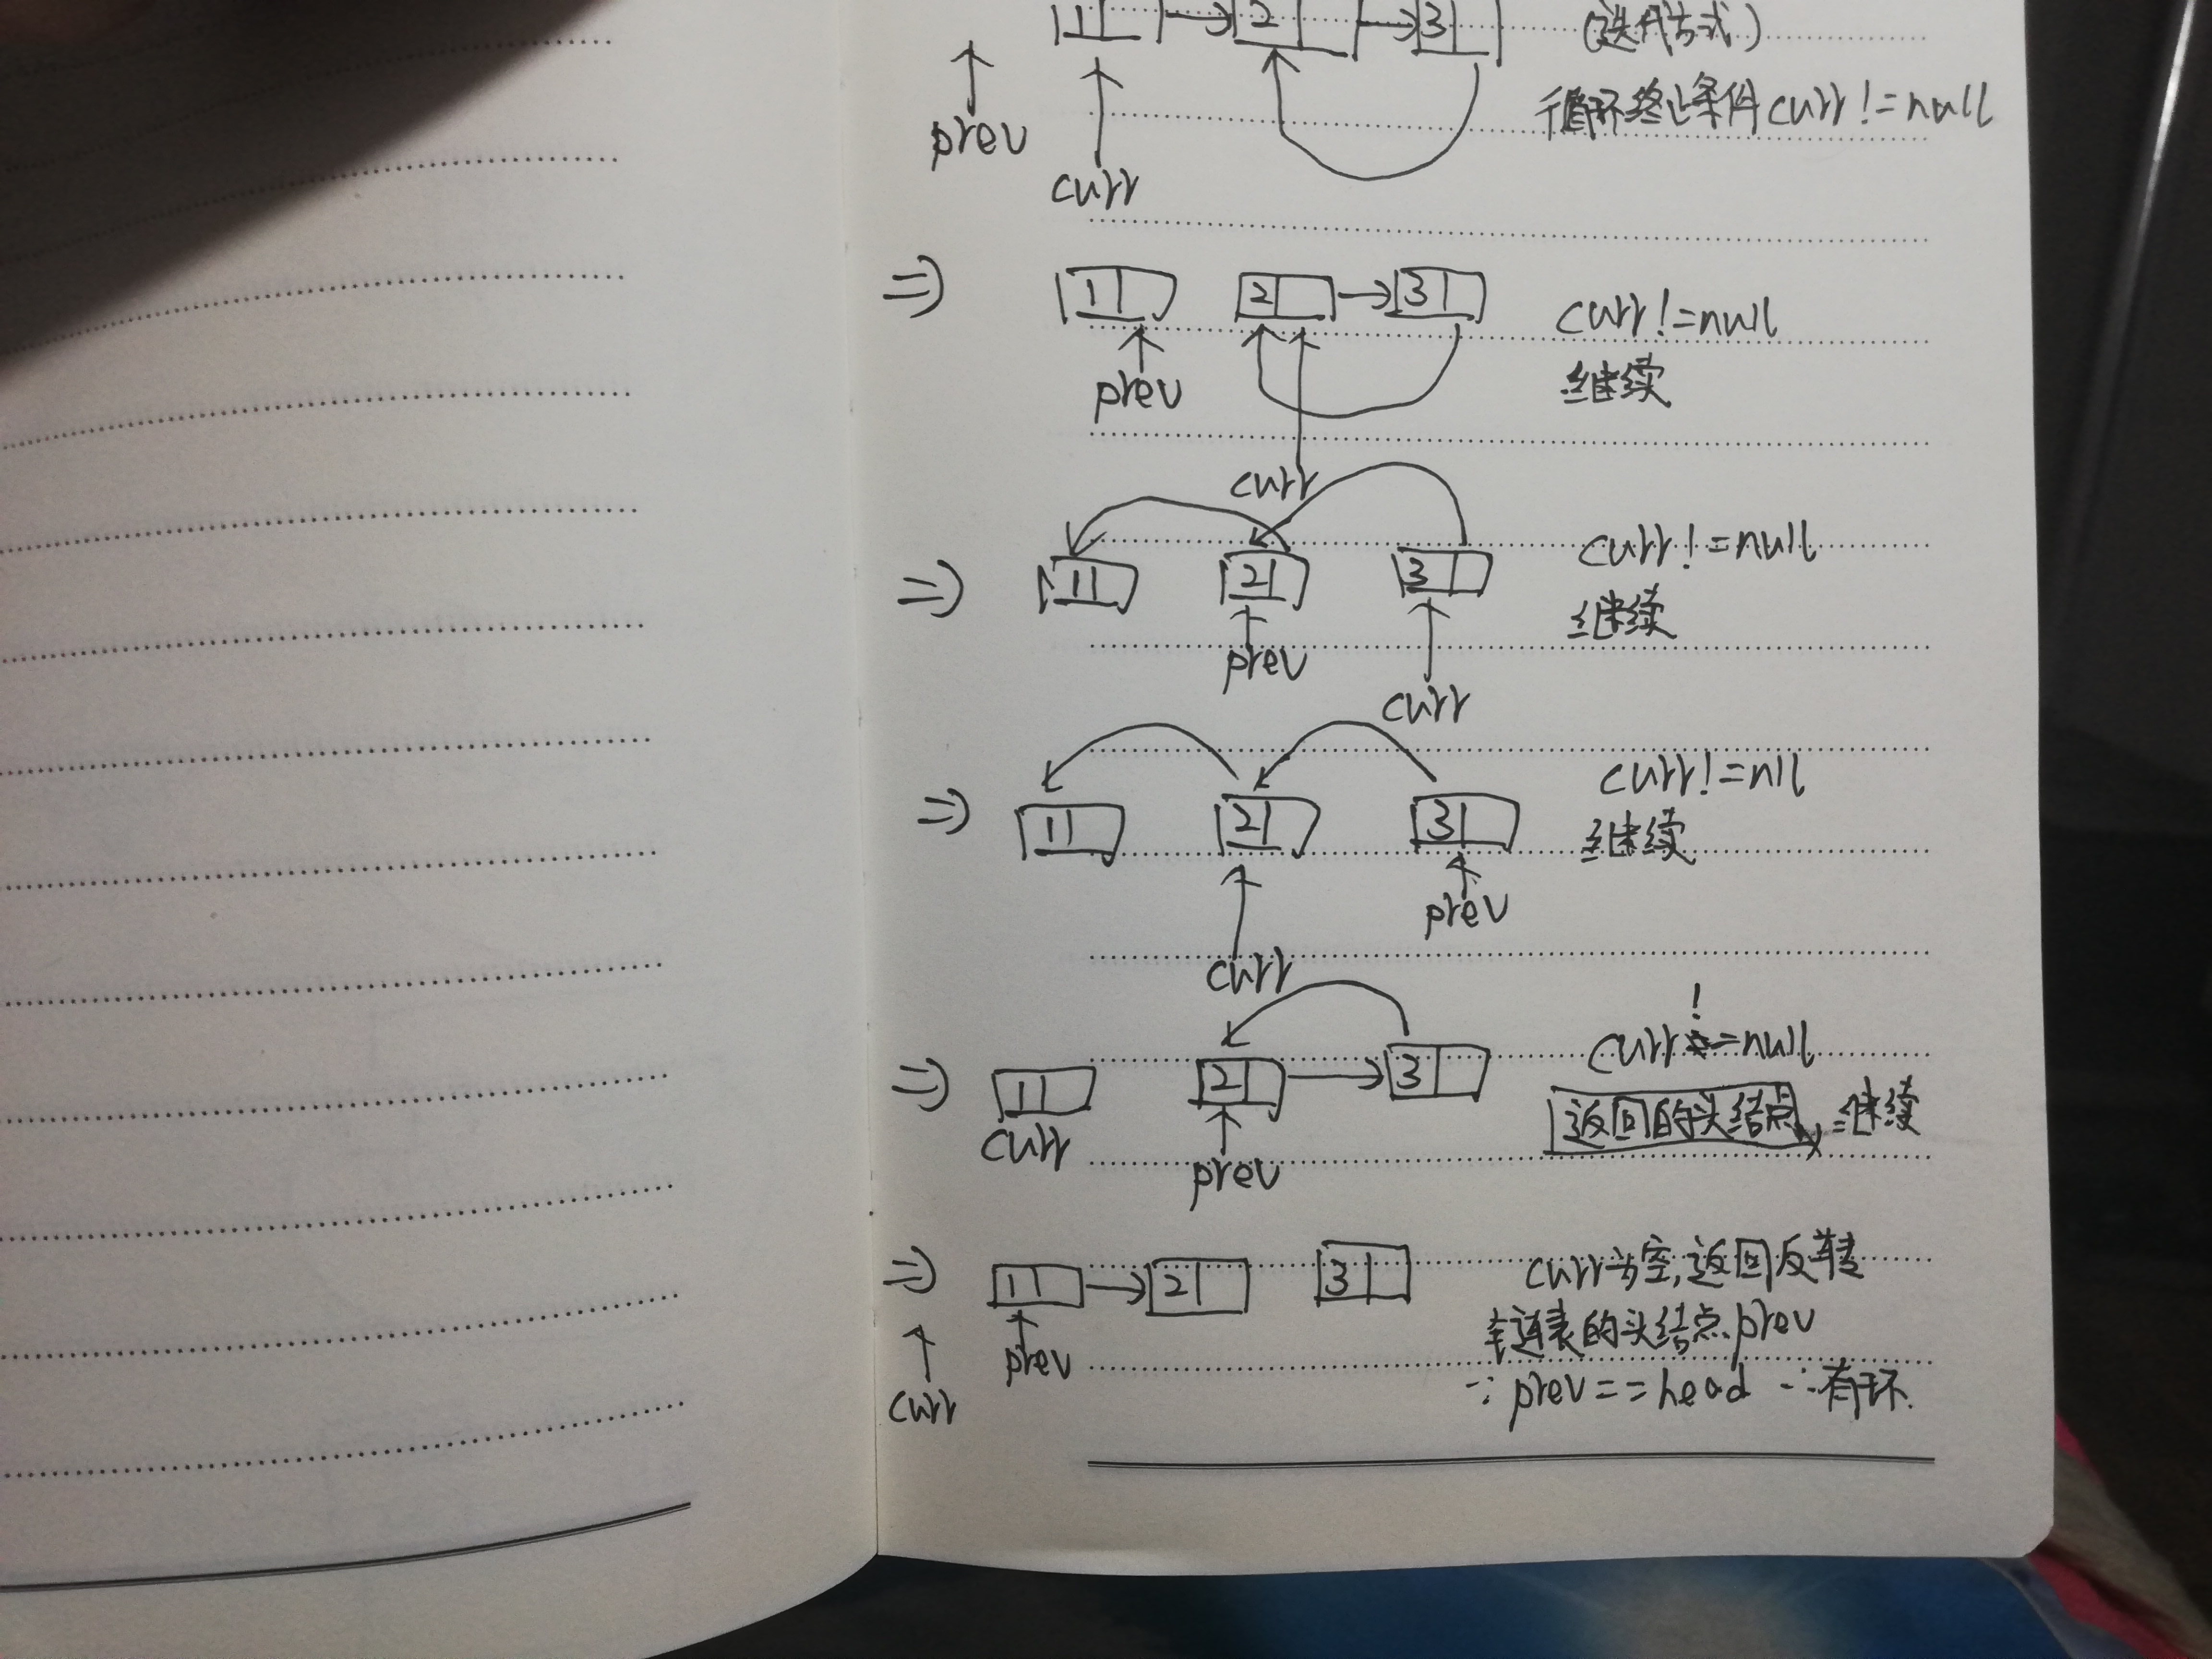 1 2 3 (迭代方式)
prev
循环终止条件curr!=null
curr
=> 1 2 3 curr!=null
prev 继续
curr
=> 1 2 3 curr!=null
继续
prev
curr
=> 1 2 3 curr!=nll
继续
prev
curr
=> 1 2 3 curr!=null
curr 返回的头结点,继续
prev
=> 1 2 3 curr为空,返回反转
链表的头结点prev
curr prev
∵prev==head ∴有环.